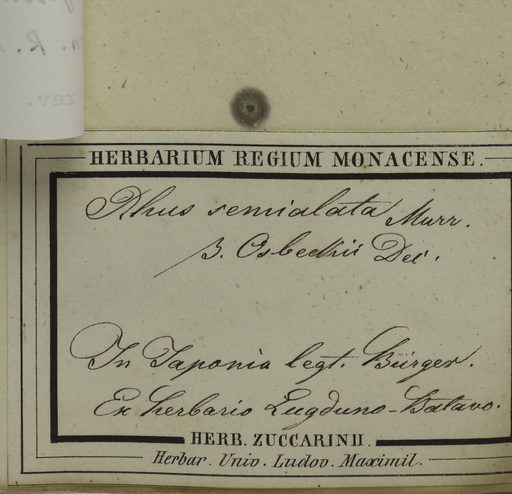 HERBARIUM REGIUM MONACENSE.
Rhus semialata Murr.
β. Osbeckii Dec.
In Japonia legt. Bürger.
Ex herbario Lugduno-Batavo.
HERB. ZUCCARINII.
Herbar. Univ. Ludov. Maximil.